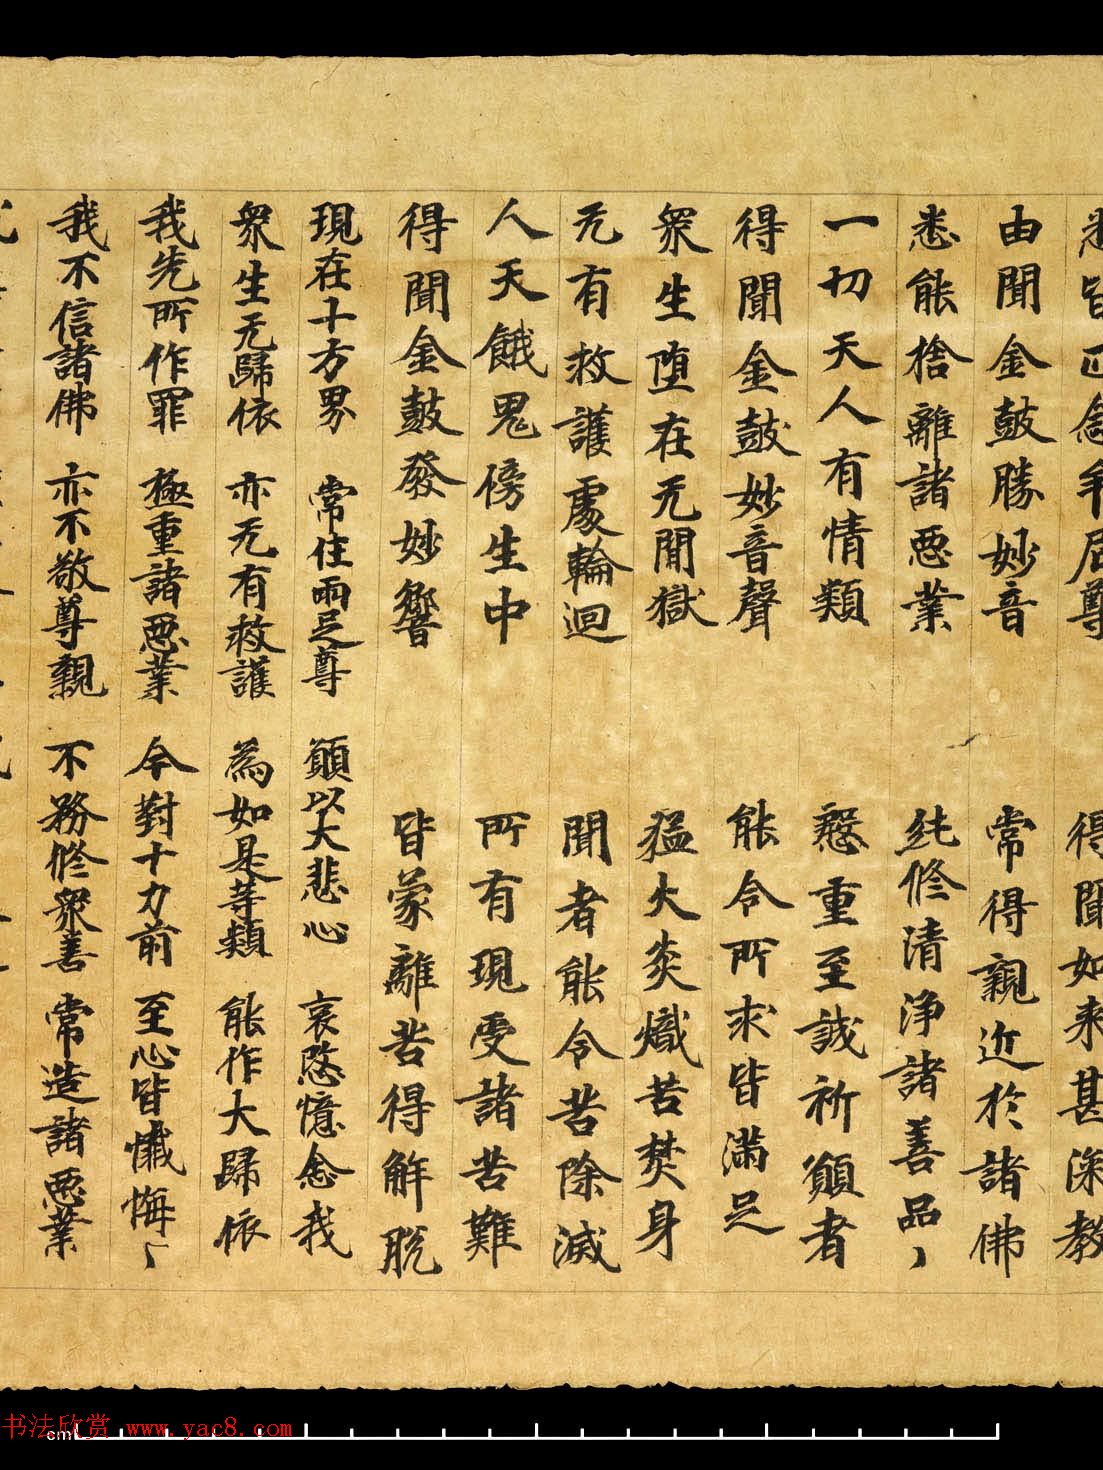 悉皆正念牟尼尊 得聞如来甚深教
由聞金鼓勝妙音 常得親近於諸佛
悉能捨離諸惡業 純修清淨諸善品
一切天人有情類 慇重至誠祈願者
得聞金鼓妙音聲 能令所求皆滿足
衆生堕在无間獄 猛火炎熾苦焚身
无有救護處輪迴 聞者能令苦除滅
人天餓鬼傍生中 所有現受諸苦難
得聞金鼓發妙響 皆蒙離苦得解脫
現在十方界 常住兩足尊 願以大悲心 哀愍憶念我
衆生无歸依 亦无有救護 為如是等類 能作大歸依
我先所作罪 極重諸惡業 今對十力前 至心皆懺悔
我不信諸佛 亦不敬尊親 不務修衆善 常造諸惡業
书法欣赏 www.yac8.com
cm